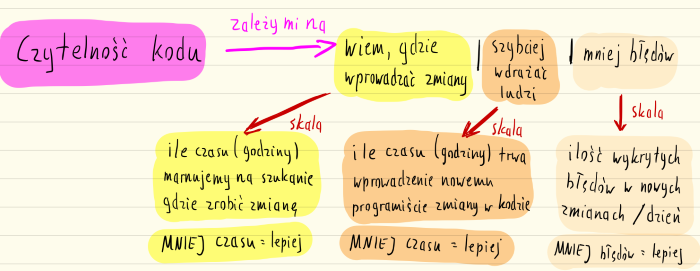 Czytelność kodu
zależy mi na
wiem, gdzie
wprowadzać zmiany
szybciej
wdrażać
ludzi
mniej błędów
skala
skala
skala
ile czasu (godziny)
marnujemy na szukanie
gdzie zrobić zmianę
MNIEJ czasu = lepiej
ile czasu (godziny) trwa
wprowadzenie nowemu
programiście zmiany w kodzie
MNIEJ czasu = lepiej
ilość wykrytych
błędów w nowych
zmianach / dzień
MNIEJ błędów = lepiej